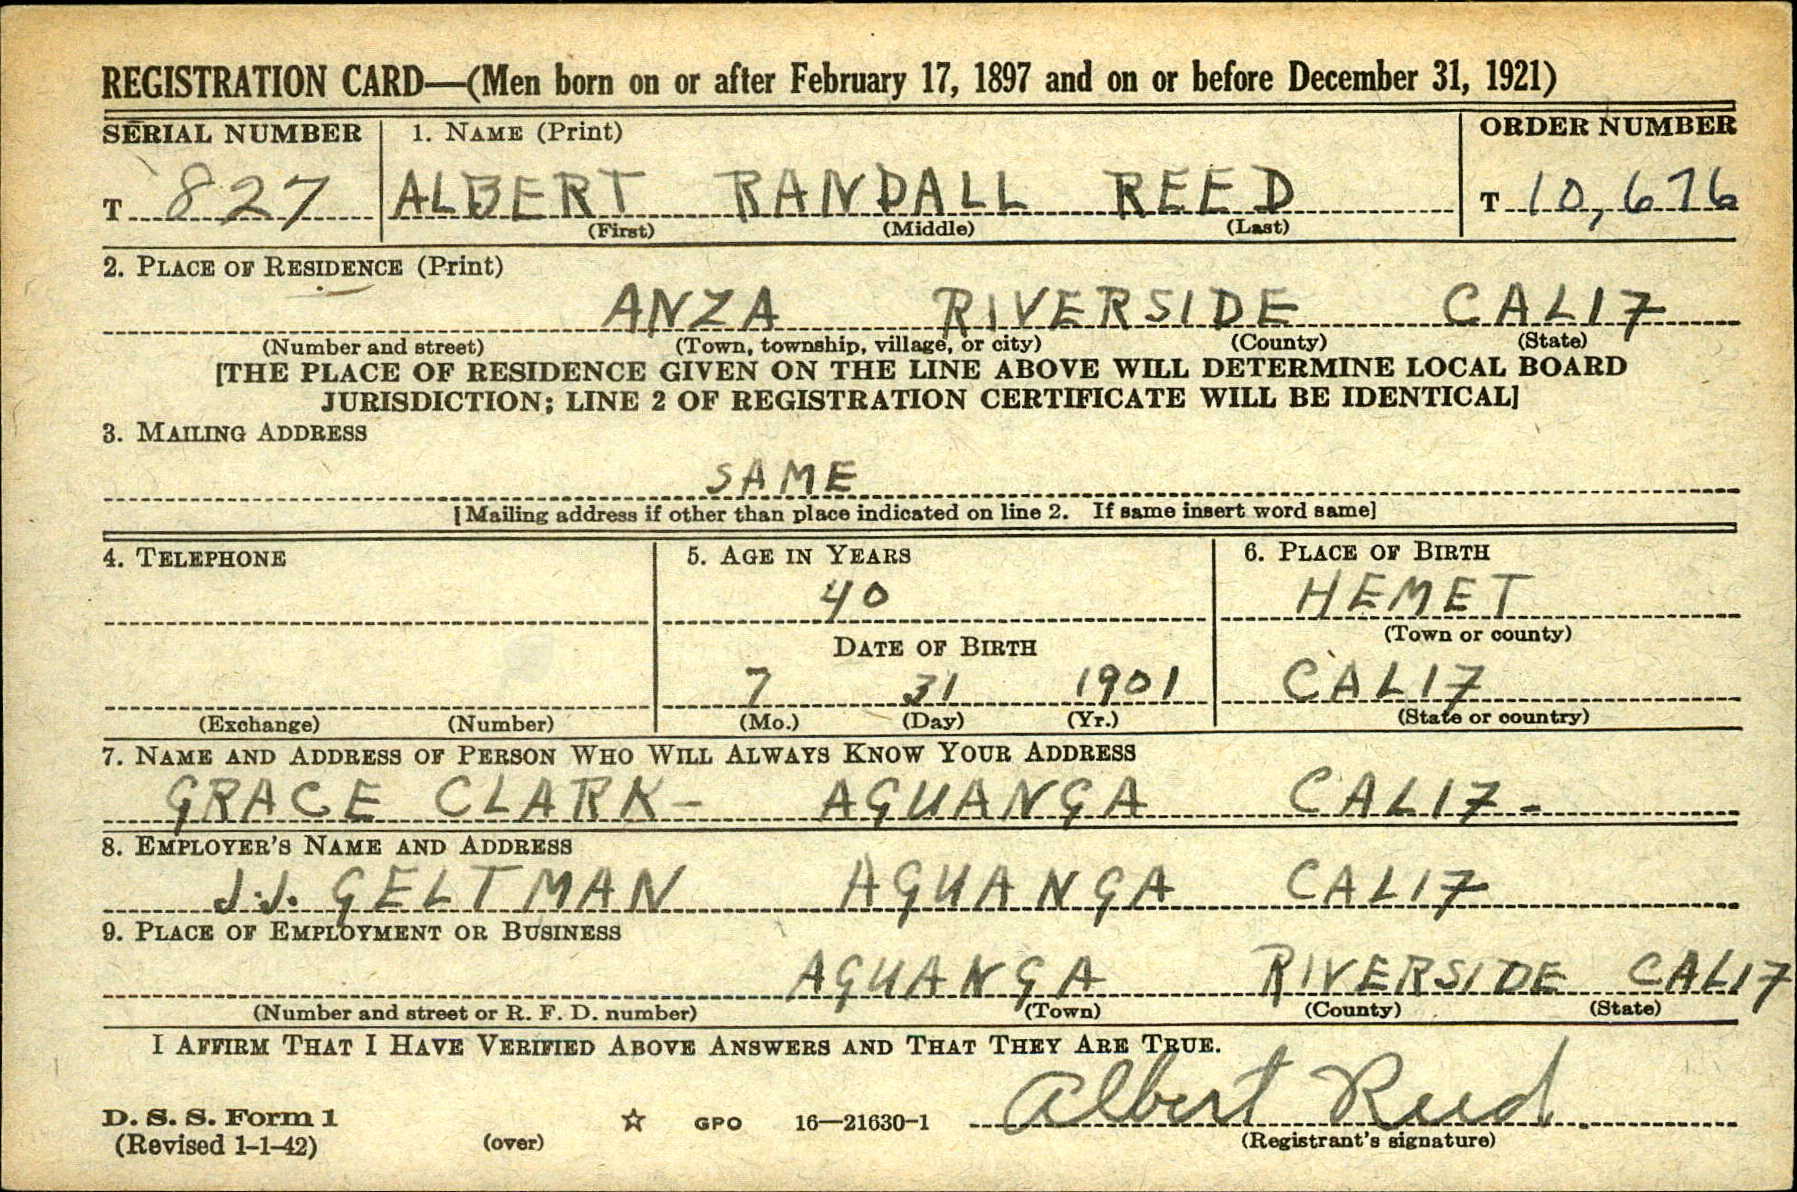 REGISTRATION CARD—(Men born on or after February 17, 1897 and on or before December 31, 1921)
SERIAL NUMBER 1. NAME (Print) ORDER NUMBER
T 827 ALBERT RANDALL REED T 10,676
(First) (Middle) (Last)
2. PLACE OF RESIDENCE (Print)
ANZA RIVERSIDE CALIF
(Number and street) (Town, township, village, or city) (County) (State)
[THE PLACE OF RESIDENCE GIVEN ON THE LINE ABOVE WILL DETERMINE LOCAL BOARD
JURISDICTION; LINE 2 OF REGISTRATION CERTIFICATE WILL BE IDENTICAL]
3. MAILING ADDRESS
SAME
[Mailing address if other than place indicated on line 2. If same insert word same]
4. TELEPHONE 5. AGE IN YEARS 6. PLACE OF BIRTH
40 HEMET
DATE OF BIRTH (Town or county)
7 31 1901 CALIF
(Exchange) (Number) (Mo.) (Day) (Yr.) (State or country)
7. NAME AND ADDRESS OF PERSON WHO WILL ALWAYS KNOW YOUR ADDRESS
GRACE CLARK - AGUANGA CALIF -
8. EMPLOYER'S NAME AND ADDRESS
J.J. GELTMAN AGUANGA CALIF
9. PLACE OF EMPLOYMENT OR BUSINESS
AGUANGA RIVERSIDE CALIF
(Number and street or R. F. D. number) (Town) (County) (State)
I AFFIRM THAT I HAVE VERIFIED ABOVE ANSWERS AND THAT THEY ARE TRUE.
Albert Reed
D. S. S. Form 1 ☆ GPO 16—21630-1
(Revised 1-1-42) (over) (Registrant's signature)